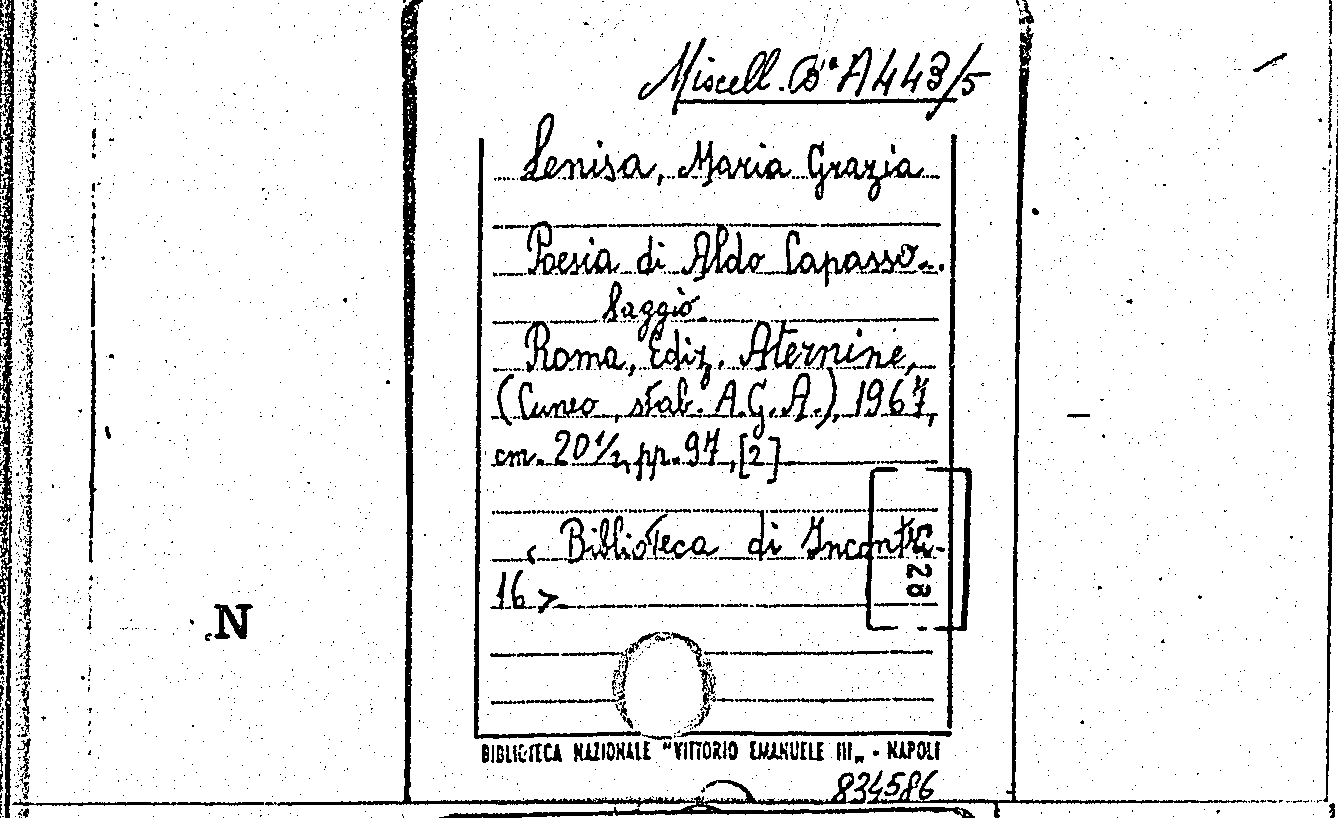 Miscell. Bª A443/5
Lenisa, Maria Grazia
Poesia di Aldo Capasso...
Saggio.
Roma, Ediz. Aternine,
(Cuneo, stab. A.G.A.), 1967,
cm. 20 1/2, pp. 97, [2]
< Biblioteca di
28
16 >
N
BIBLIOTECA NAZIONALE "VITTORIO EMANUELE III„ - NAPOLI
834586